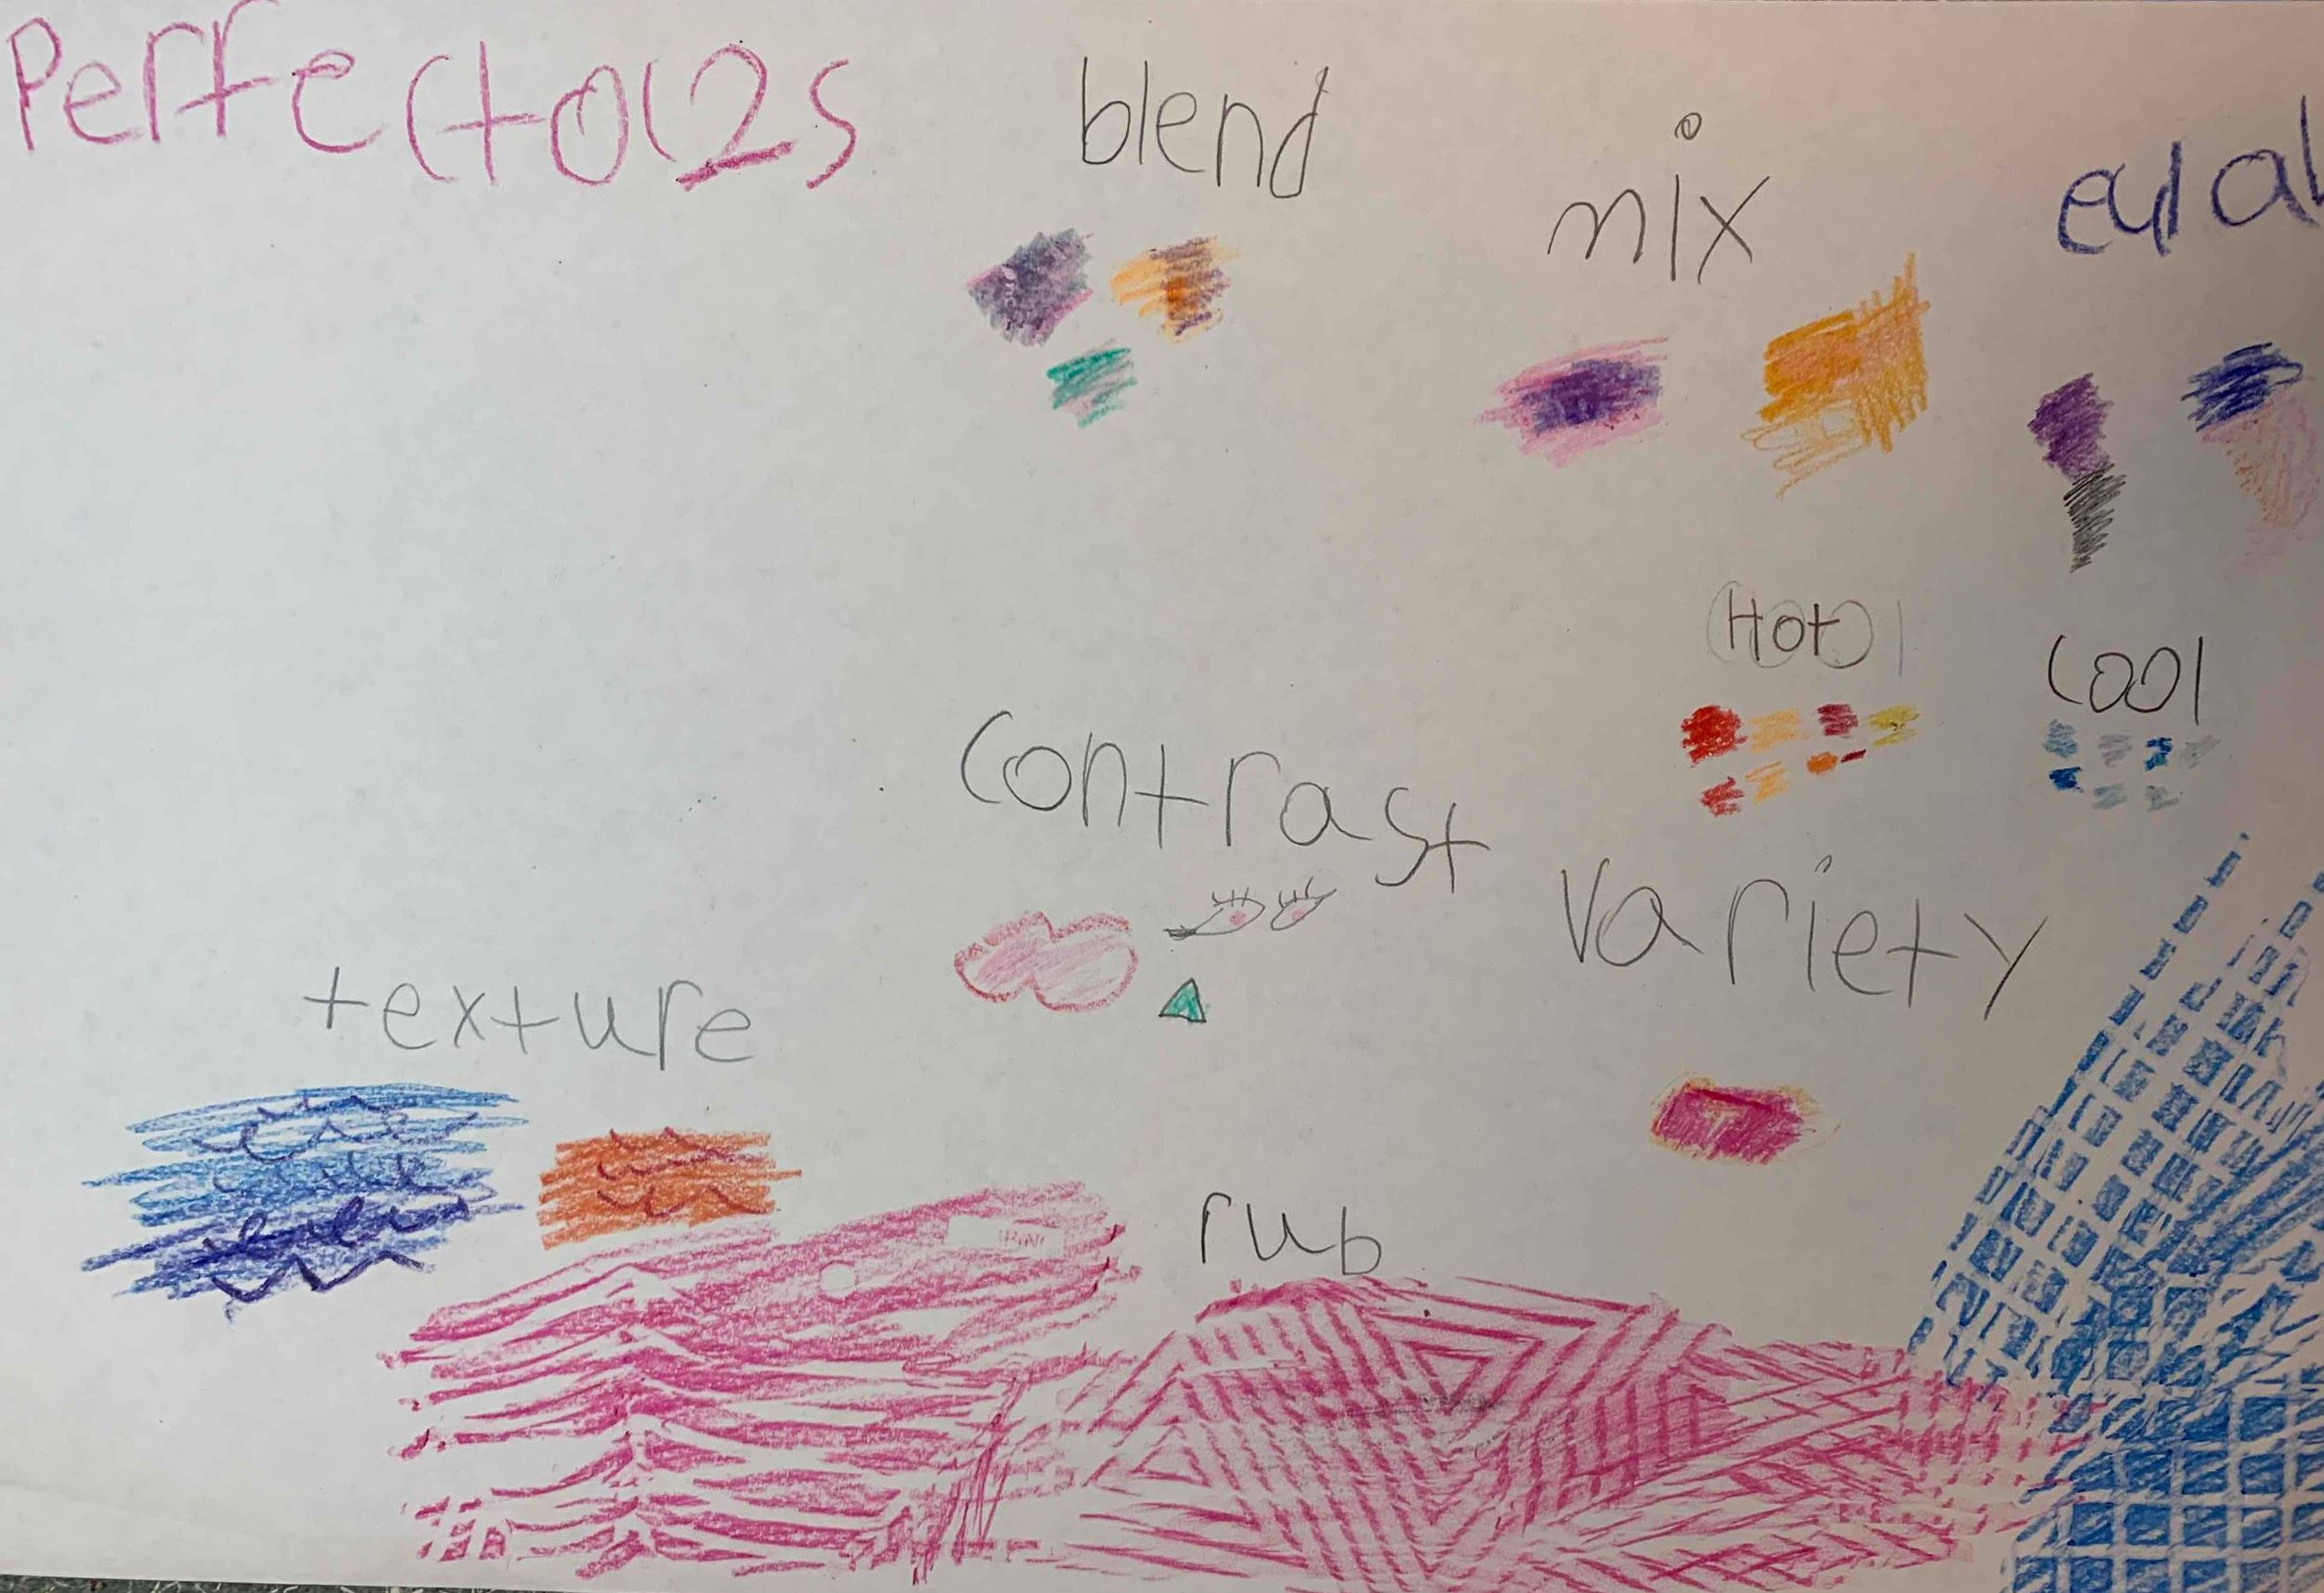 blend
mix
Hot
Cool
contrast
variety
texture
rub